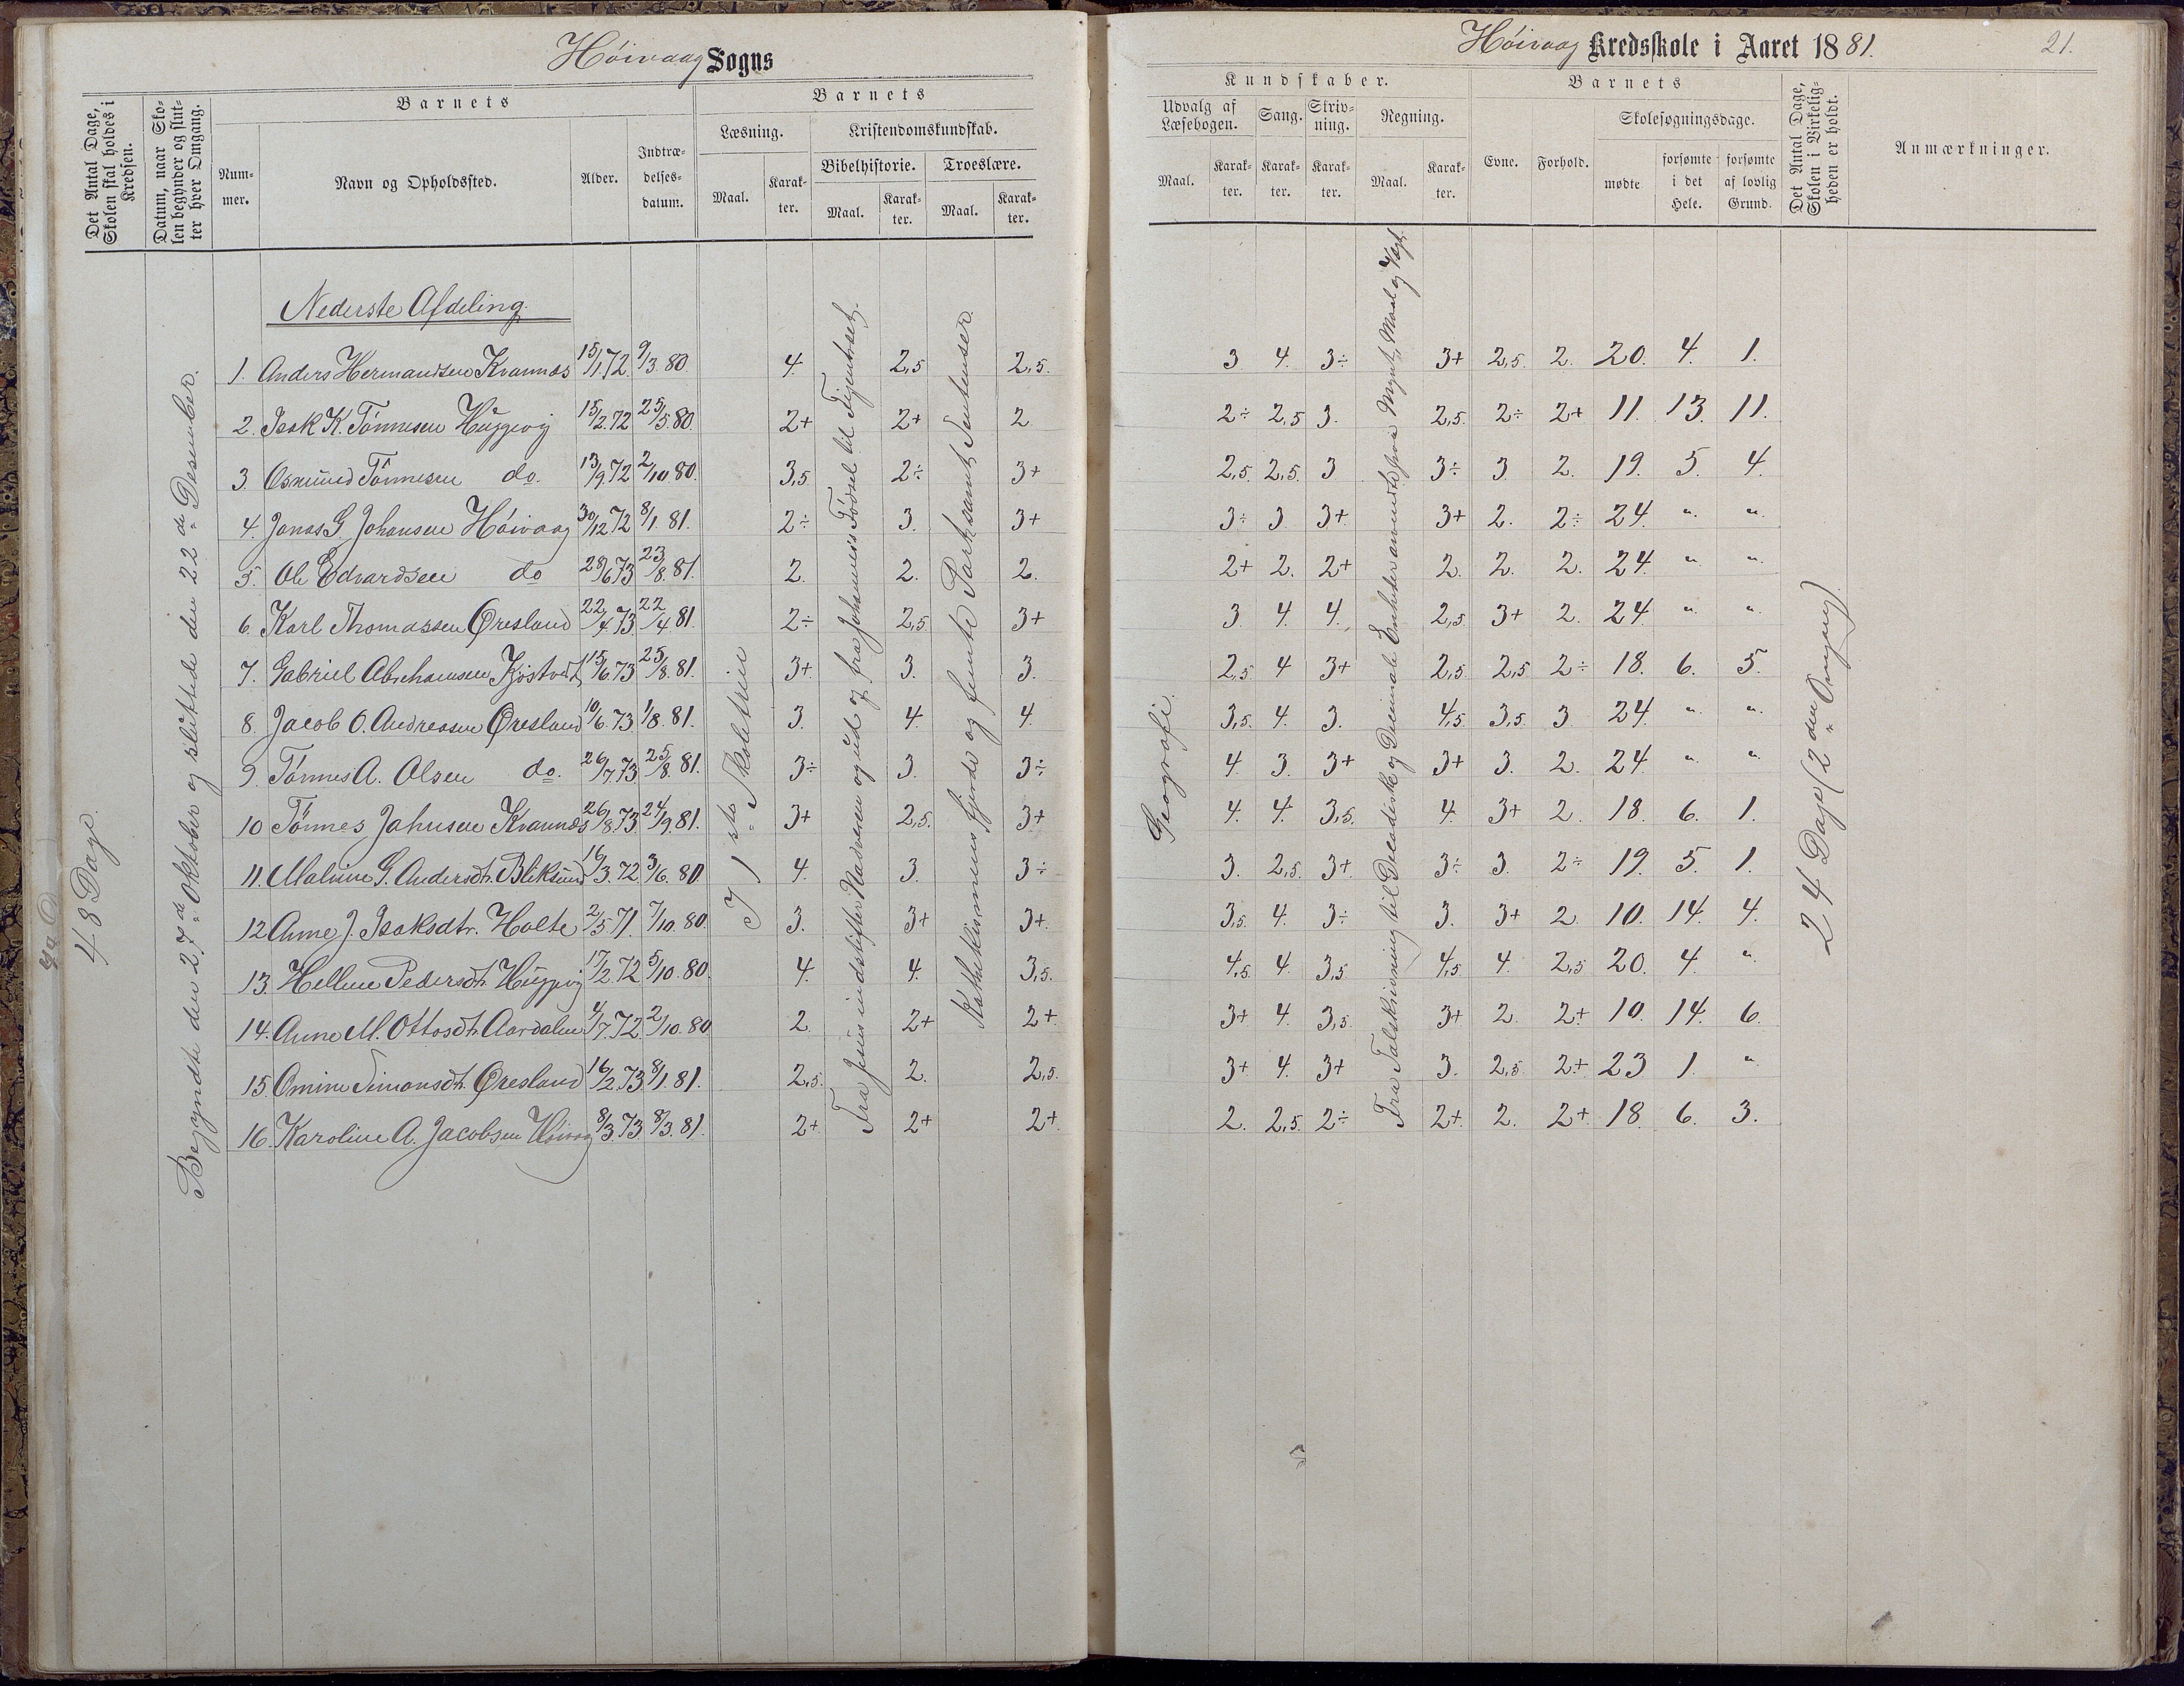 Høivaag Sogns
Det Antal Dage, Skolen skal holdes i Kredsen.
Datum, naar Skolen begynder og slutter hver Omgang.
Barnets
Nummer.
Navn og Opholdssted.
Alder.
Indtrædelsesdatum.
Barnets
Læsning.
Maal.
Karakter.
Kristendomskundskab.
Bibelhistorie.
Maal.
Karakter.
Troeslære.
Maal.
Karakter.
48 Dage.
Begyndte den 27de Oktober og sluttede den 22de Desember.
Nederste Afdeling.
1. Anders Hermandsen Kvannes 15/1.72. 9/3.80. 4. 2,5 2,5.
2. Isak K. Tønnesen Huggevig 15/2.72 25/5.80. 2+ 2+ 2
3. Osmund Tønnesen do. 13/9.72 2/10.80. 3,5 2÷ 3+
4. Jonas G. Johansen Høivaag 30/12.72 8/1.81. 2÷ 3. 3+
5. Ole Edvardsen do 28/6.73 23/8.81. 2. 2. 2.
6. Karl Thomassen Øresland 22/4.73 22/4.81. 2÷ 2,5. 3+
7. Gabriel Abrahamsen Kjøstvedt 15/6.73 25/8.81. 3+ 3. 3.
8. Jacob O. Andreasen Øresland 10/6.73 1/8.81. 3. 4. 4.
9. Tønnes A. Olsen do. 26/7.73 25/8.81. 3÷ 3. 3÷
10 Tønnes Jahnsen Kvannes 26/8.73 24/9.81. 3+ 2,5. 3+
11. Maline G. Andersdt. Bliksund 16/3.72. 3/6.80 4. 3. 3÷
12 Anne J. Isaksdtr. Holte 2/5.71. 7/10.80. 3. 3+ 3+.
13. Helline Pedersdt. Huggevig 17/2.72 5/10.80. 4. 4. 3,5.
14. Anne M. Ottosdt. Aardalen 4/7.72. 2/10.80 2. 2+ 2+.
15. Omine Simonsdt. Øresland 16/2.73 8/1.81. 2,5. 2. 2,5.
16. Karoline A. Jacobsen Høivaag 8/3.73 8/3.81. 2+. 2+ 2+.
I 1ste Skoletrin
Fra Jesus indstifter Nadveren og ud og fra Johannes's Fødsel til
Katekismens fjerde og femte Part samt Sentenser.
Høivaag Kredsskole i Aaret 1881.
21.
Kundskaber.
Udvalg af Læsebogen.
Maal.
Karakter.
Sang.
Karakter.
Skrivning.
Karakter.
Regning.
Maal.
Karakter.
Barnets
Evne.
Forhold.
Skolesøgningsdage.
mødte
forsømte i det Hele.
forsømte af lovlig Grund.
Det Antal Dage, Skolen i Virkeligheden er holdt.
Anmærkninger.
3 4. 3÷ 3+ 2,5. 2. 20. 4. 1.
2÷ 2,5 3. 2,5. 2÷ 2+ 11. 13. 11.
2,5. 2,5. 3 3÷ 3 2. 19. 5. 4.
3÷ 3 3+. 3+ 2. 2÷ 24. " "
2+ 2. 2+ 2. 2. 2. 24. " "
3 4. 4. 2,5. 3+ 2. 24. " "
2,5 4 3+ 2,5 2,5 2÷ 18. 6. 5.
3,5. 4. 3. 4,5. 3,5. 3 24. " "
4. 3. 3+ 3+ 3. 2. 24. " "
4. 4. 3,5. 4. 3+ 2. 18. 6. 1.
3. 2,5. 3+. 3÷ 3. 2÷ 19. 5. 1.
3,5. 4. 3÷ 3. 3+ 2. 10. 14. 4.
4,5. 4. 3,5 4,5 4. 2,5 20. 4. "
3+ 4. 3,5. 3+ 2. 2+ 10. 14. 6.
3+ 4. 3+ 3. 2,5 2+ 23 1. "
2. 2,5. 2÷ 2+. 2. 2+ 18. 6. 3.
Geografi.
Fra Talskrivning til Decadiske og Decimale Enheder anvendte paa Mynt, Maal og Vægt.
24 Dage (2den Omgang).